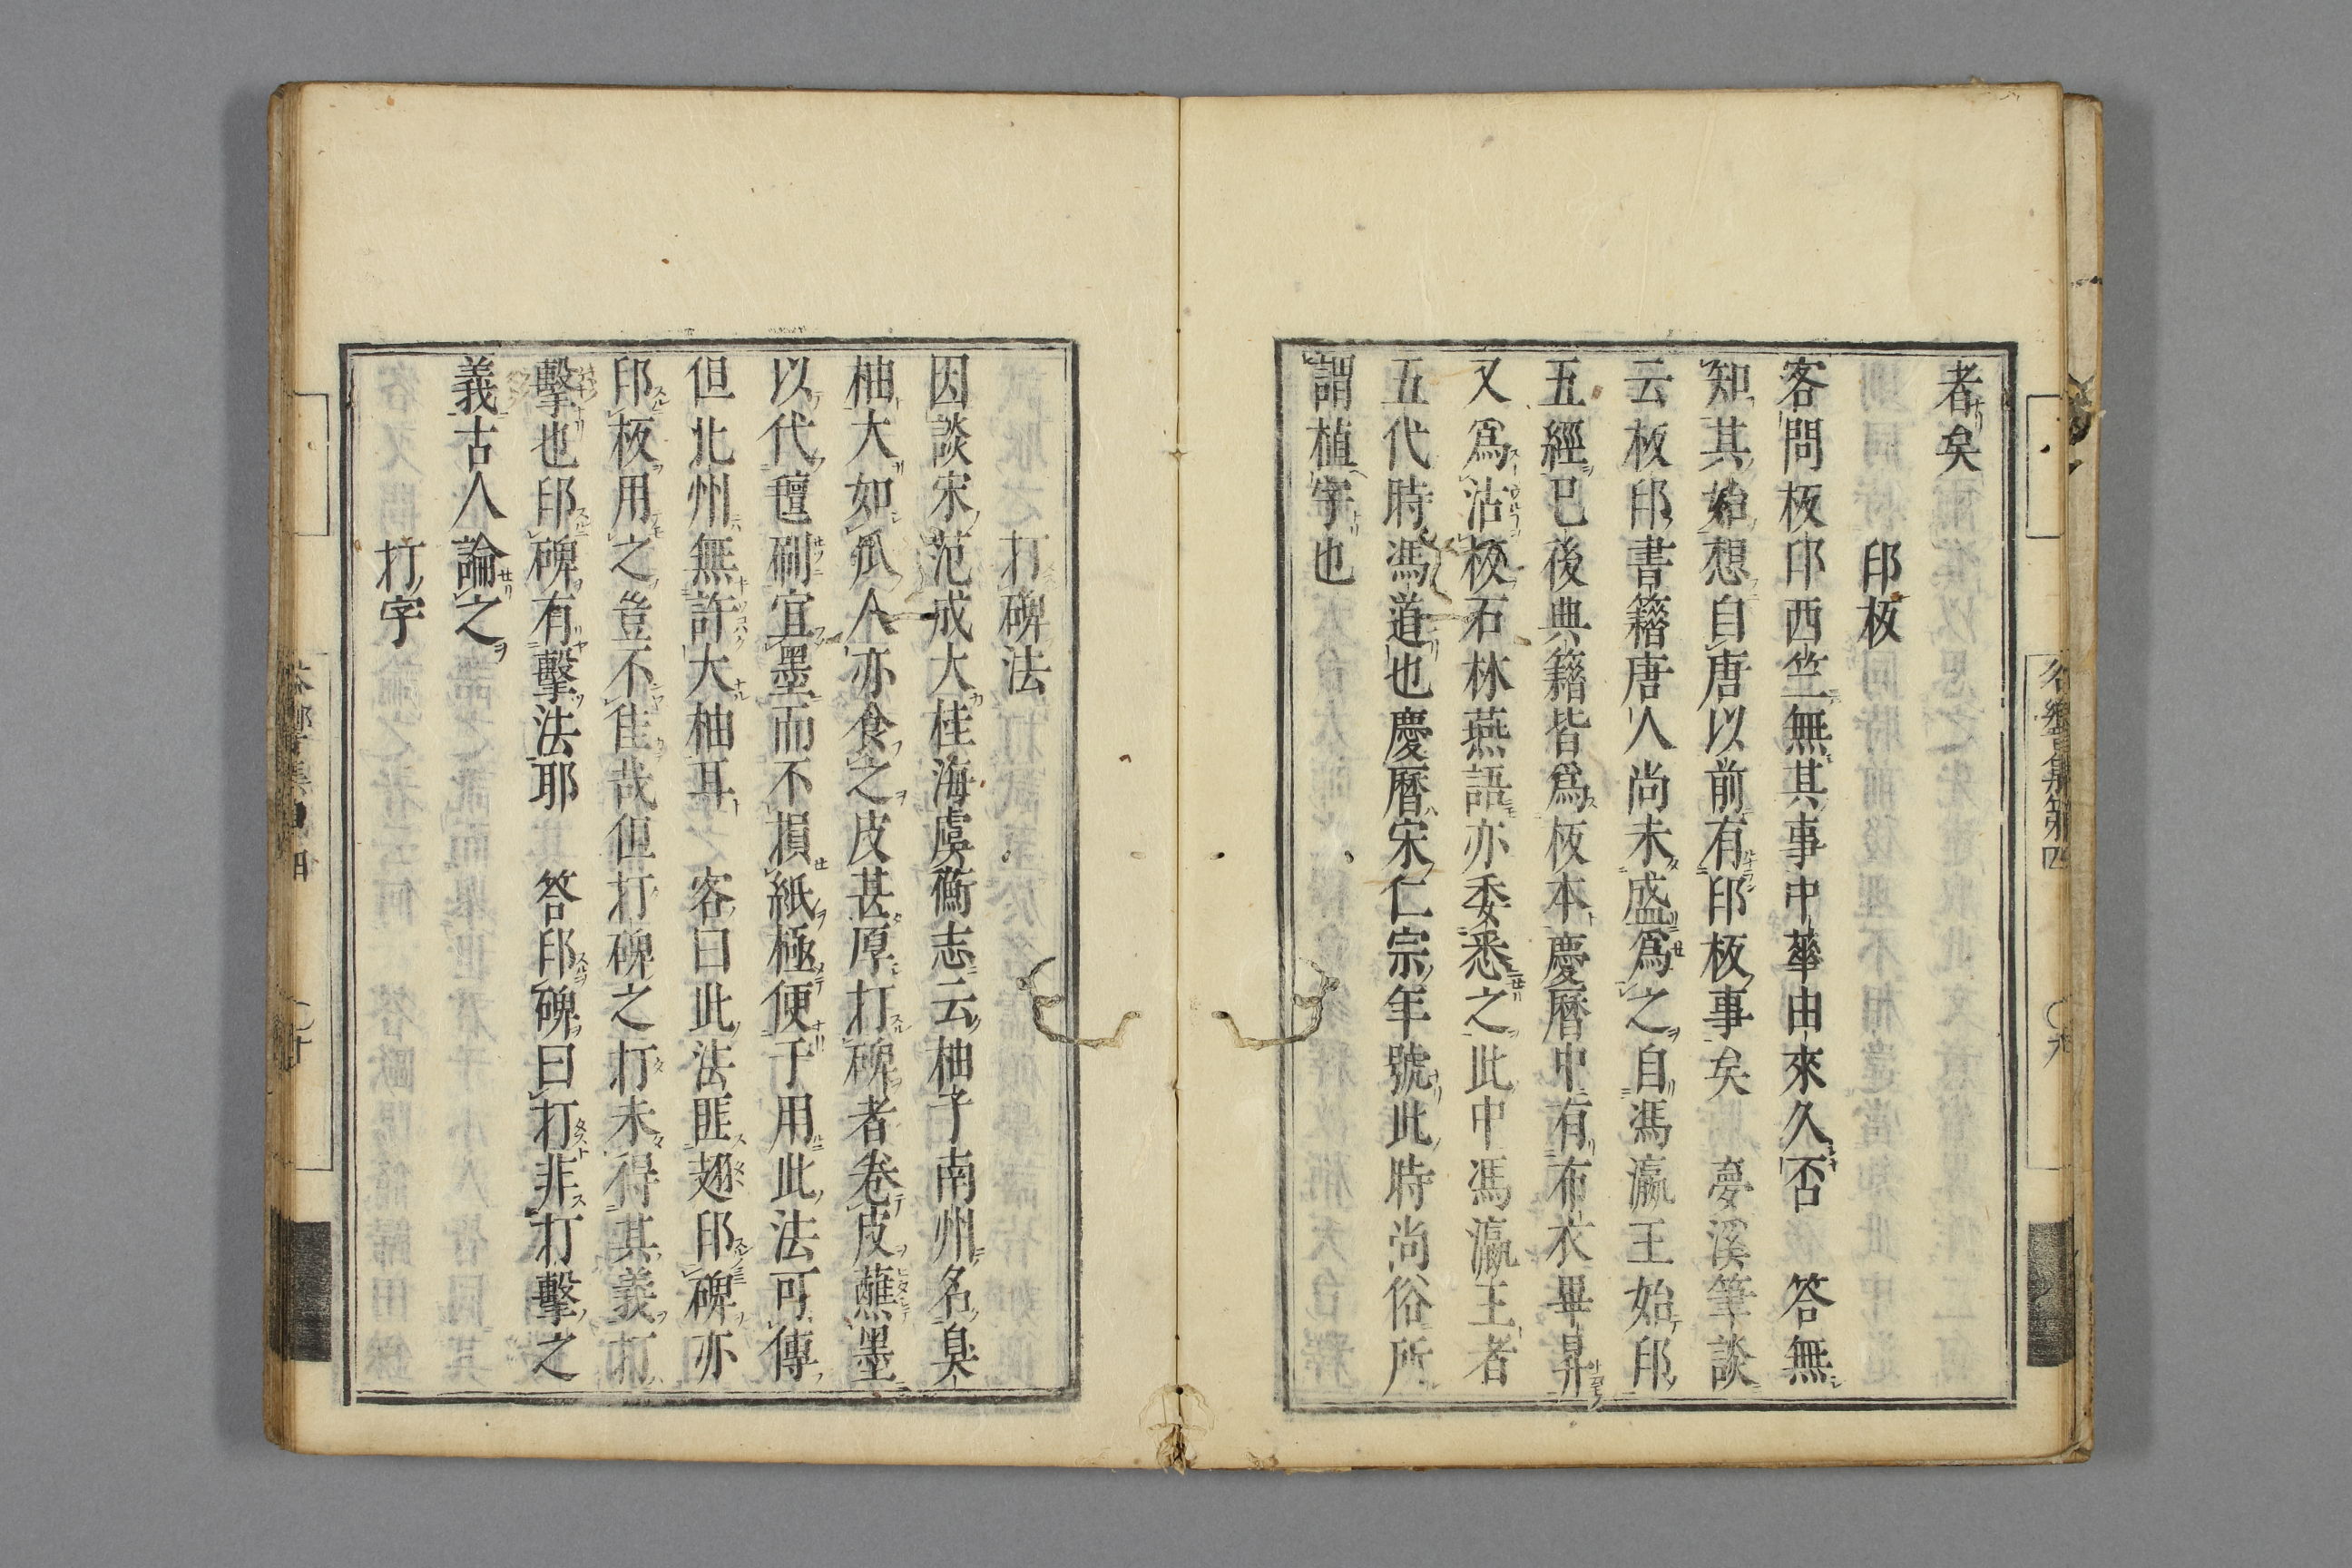 者矣
印板
客問板印西竺無其事中華由來久否　答無
知其始想自唐以前有印板事矣　夢溪筆談
云板印書籍唐人尚未盛爲之自馮瀛王始印
五經已後典籍皆爲板本慶曆中有布衣畢昇
又爲活板石林燕語亦委悉之此中馮瀛王者
五代時馮道也慶曆宋仁宗年號此時尚俗所
謂植字也
打碑法
因談宋范成大桂海虞衡志云柚子南州名臭
柚大如瓜人亦食之皮甚厚打碑者卷皮蘸墨
以代氊刷宜墨而不損紙極便于用此法可傳
但北州無許大柚耳　客曰此法匪翅印碑亦
印板用之豈不佳哉但打碑之打未得其義打
擊也印碑有擊法耶　答印碑曰打非打擊之
義古人論之
打字